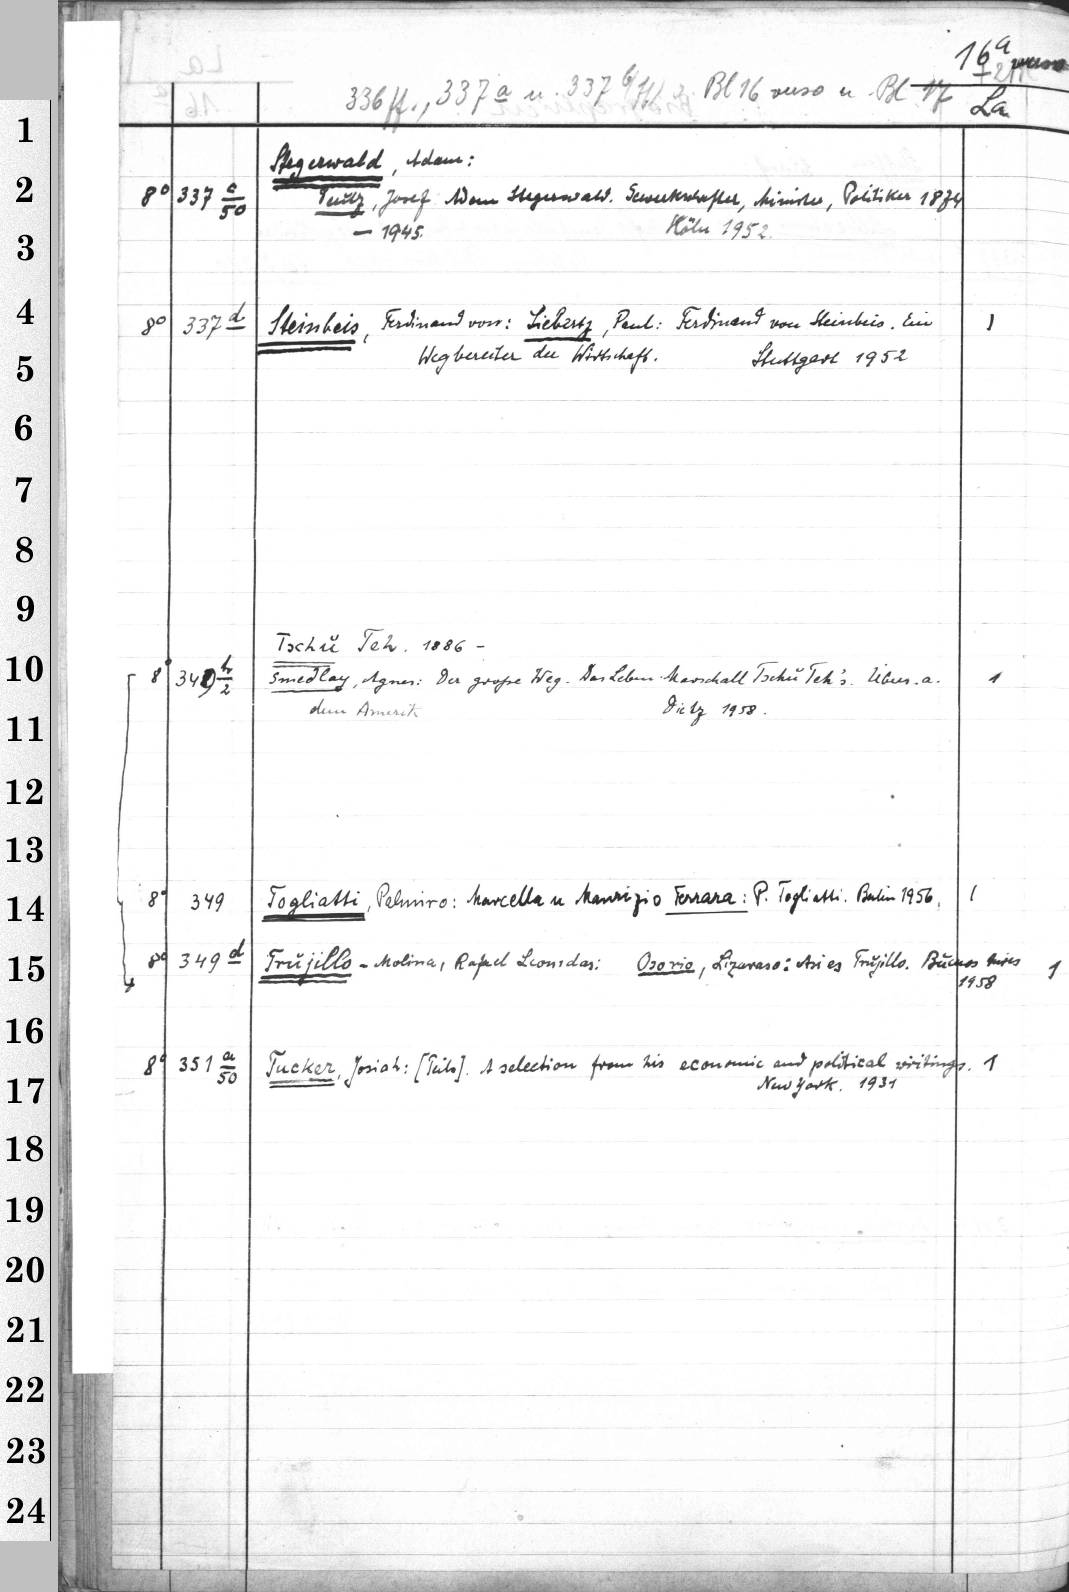 16a
336ff., 337 a u. 337 Bl 16 verso u. Bl 17 La
Stegerwald, Adam:
8° 337 a/50 Deutz, Josef Adam Stegerwald. Gewerkschafter, Minister, Politiker 1874
— 1945. Köln 1952.
8° 337 d Steinbeis, Ferdinand von: Siebertz, Paul: Ferdinand von Steinbeis. Ein 1
Wegbereiter der Wirtschaft. Stuttgart 1952
Tschŭ Teh. 1886 –
8° 349 /2 Smedlay, Agnes: Der große Weg. Das Leben Marschall Tschŭ Teh's. Übers. a. 1
dem Amerik Dietz 1958.
8° 349 Togliatti, Palmiro: Marcella u Maurizio Ferrara: P. Togliatti. Berlin 1956. 1
8° 349 d Trŭjillo - Molina, Rafael Leonidas: Osorio, Lizaraso: Asi es Trŭjillo. Bŭenos Aires 1
1958
8° 351 a/50 Tucker, Josiah: [Teils]. A selection from his economic and political writings. 1
New York. 1931
1
2
3
4
5
6
7
8
9
10
11
12
13
14
15
16
17
18
19
20
21
22
23
24